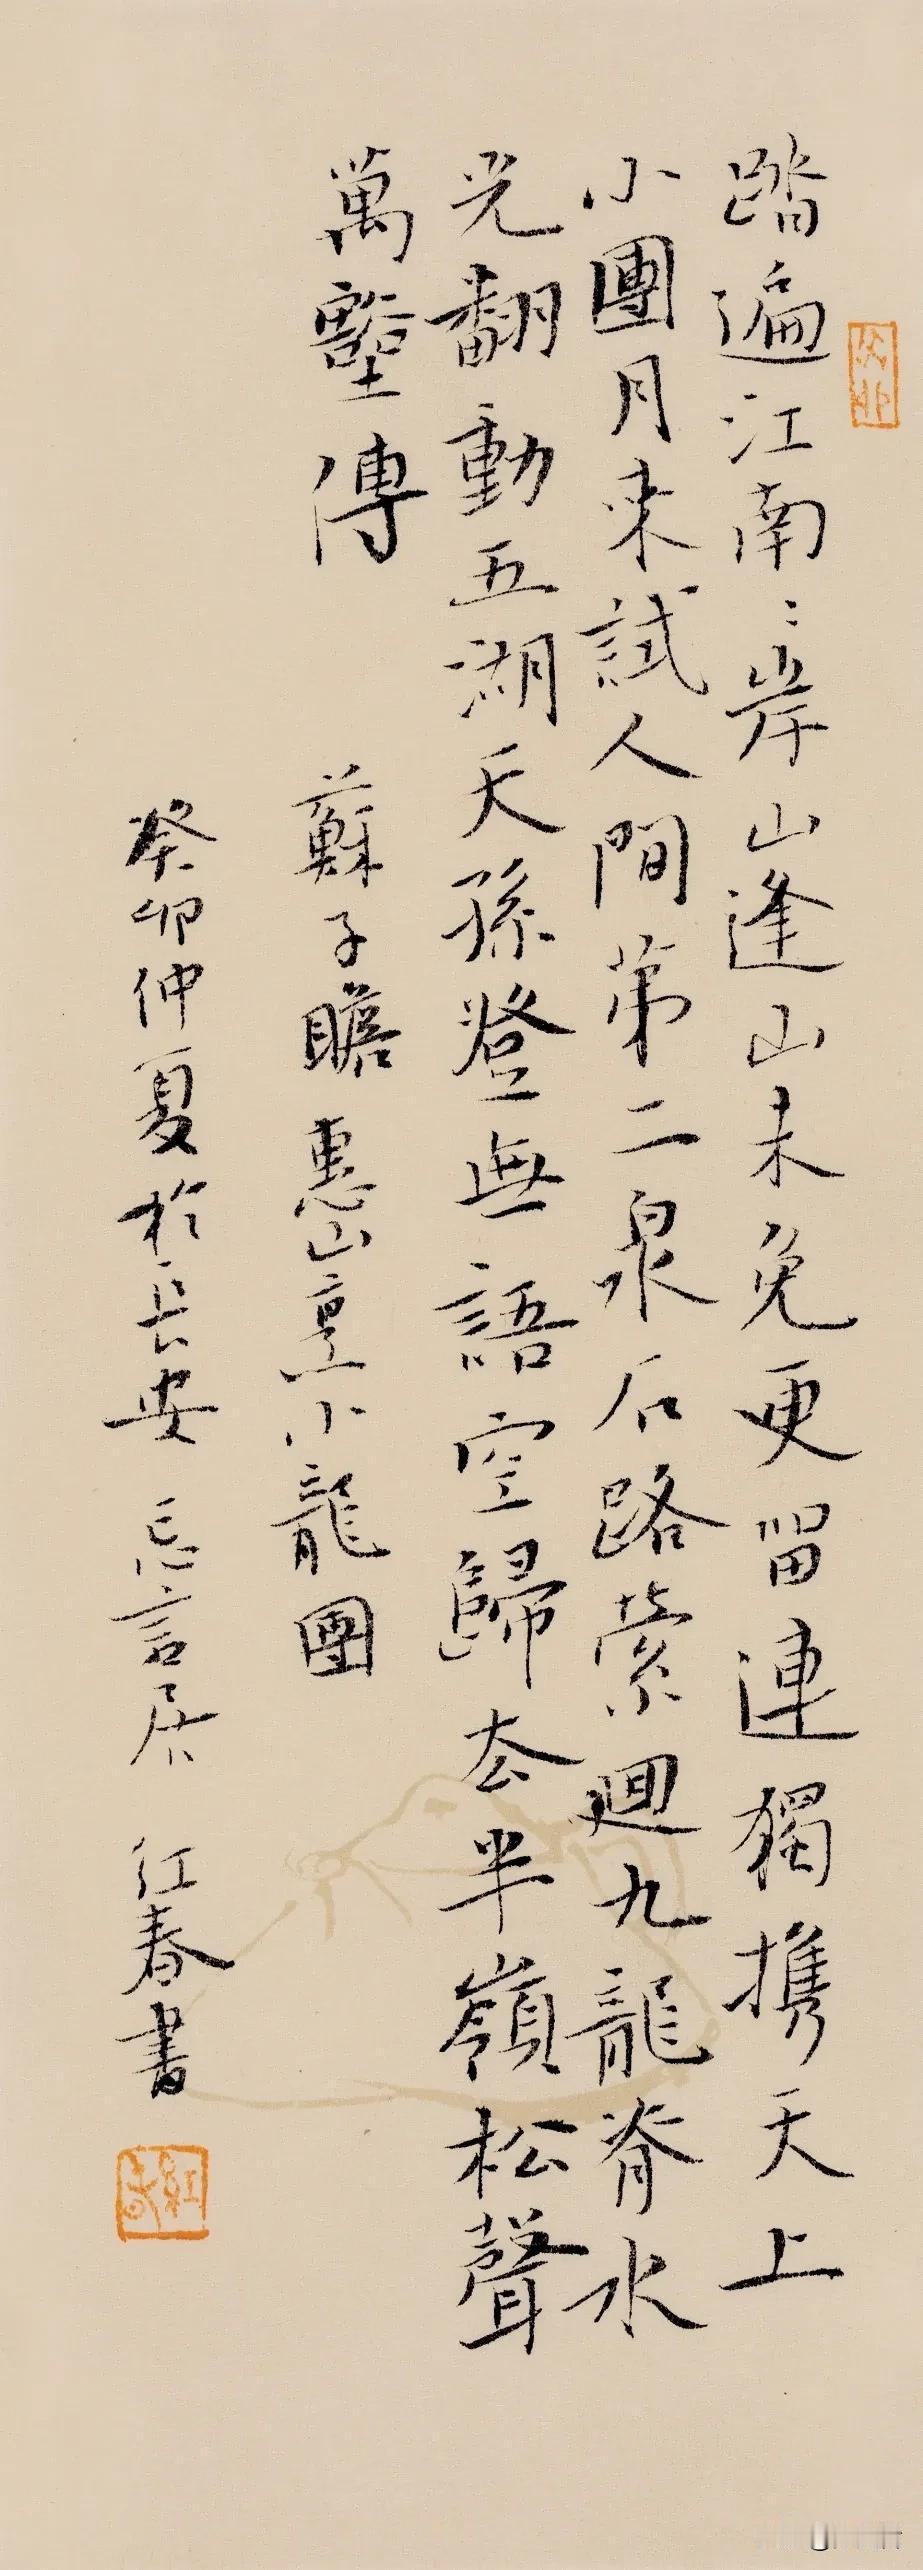 踏遍江南〻岸山逢山未免更留連獨携天上
小團月来試人間第二泉石路縈廻九龍脊水
光翻動五湖天孫登無語空歸去半嶺松聲
萬壑傳
蘇子瞻惠山烹小龍團
癸卯仲夏於長安忘言居 红春書
紅春